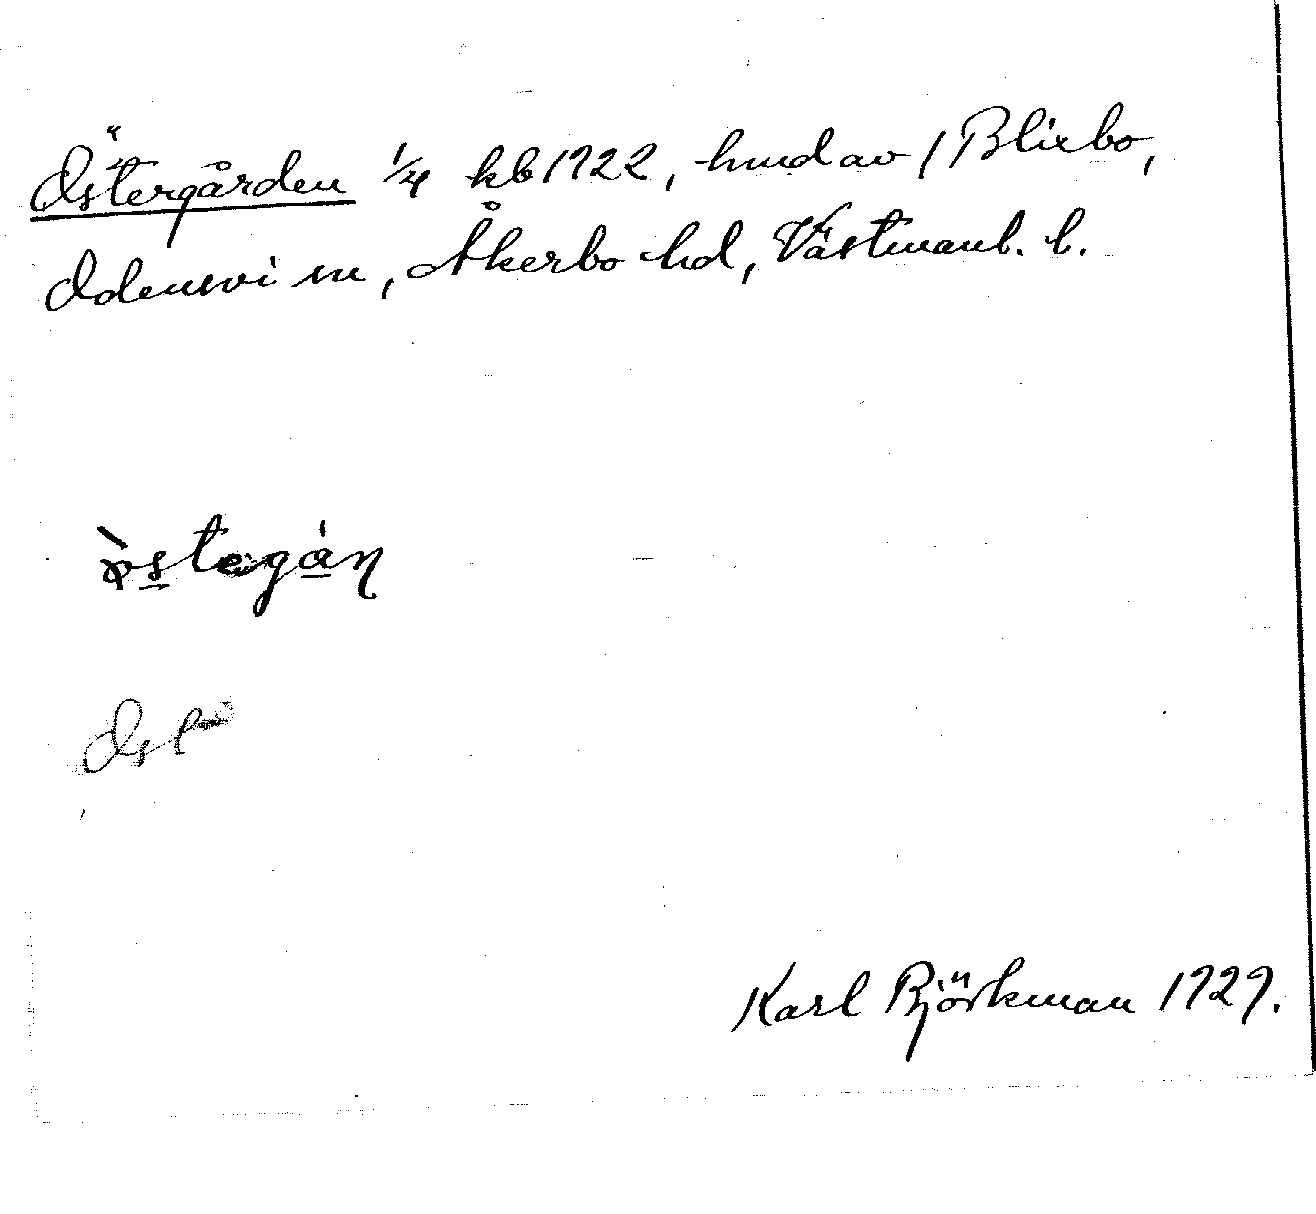 Östergården 1/4 kb 1922, hmd av 1 Blixbo,
Odensvi sn, Åkerbo hd, Västmanl. l.
Karl Björkman 1929.